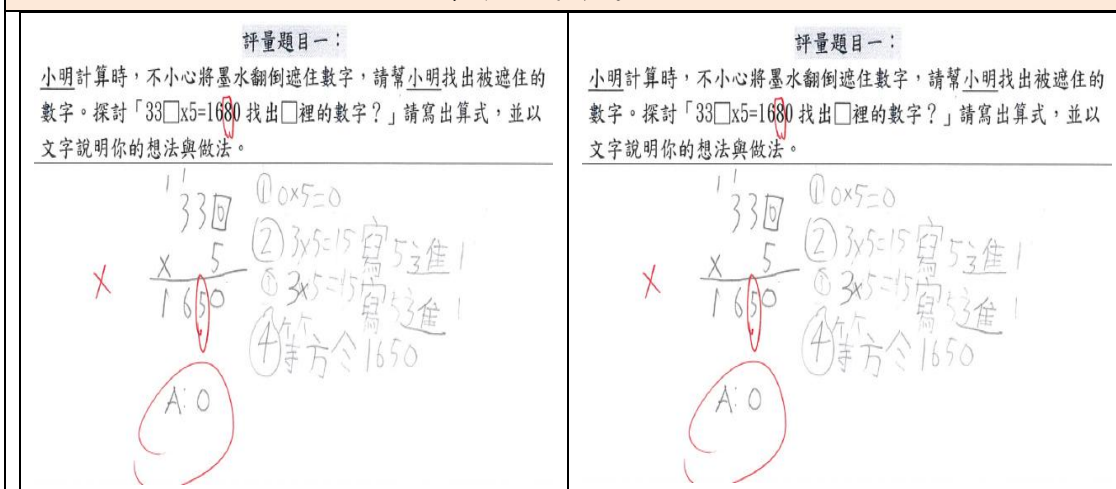 評量題目一：
小明計算時，不小心將墨水翻倒遮住數字，請幫小明找出被遮住的
數字。探討「33□x5=1680 找出□裡的數字？」請寫出算式，並以
文字說明你的想法與做法。
1 1
330
x 5
1650
A: 0
①0x5=0
②3x5=15寫5進1
③3x5=15寫5進1
④等於1650
評量題目一：
小明計算時，不小心將墨水翻倒遮住數字，請幫小明找出被遮住的
數字。探討「33□x5=1680 找出□裡的數字？」請寫出算式，並以
文字說明你的想法與做法。
1 1
330
x 5
1650
A: 0
①0x5=0
②3x5=15寫5進1
③3x5=15寫5進1
④等於1650